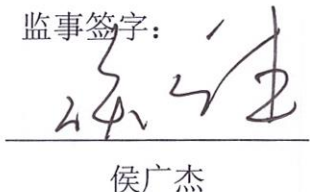 监事签字：
侯广杰